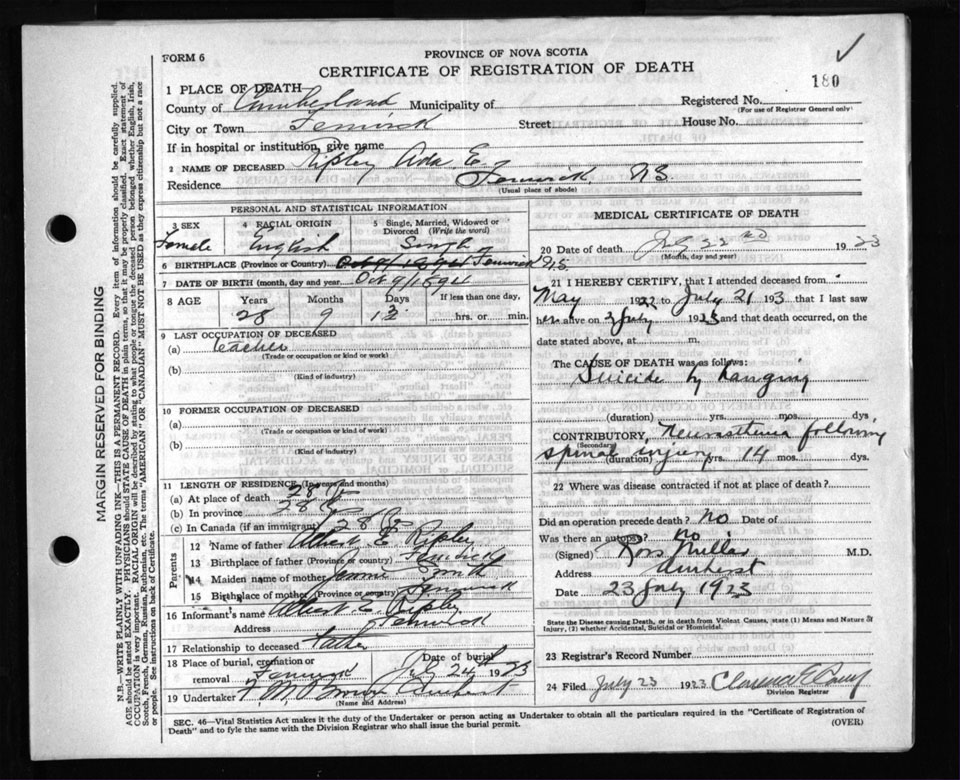 FORM 6
PROVINCE OF NOVA SCOTIA
CERTIFICATE OF REGISTRATION OF DEATH
180
1 PLACE OF DEATH—
County of Cumberland Municipality of
Registered No.
(For use of Registrar General only)
City or Town Fenwick Street House No.
If in hospital or institution, give name
2 NAME OF DECEASED Ripley Ada E.
Residence Fenwick, N.S
(Usual place of abode)
PERSONAL AND STATISTICAL INFORMATION
3 SEX
Female
4 RACIAL ORIGIN
English
5 Single, Married, Widowed or Divorced (Write the word)
Single
6 BIRTHPLACE (Province or Country) Fenwick N.S.
7 DATE OF BIRTH (month, day and year) Oct 9/1894
8 AGE Years Months Days If less than one day,
28 9 13 hrs. or min.
9 LAST OCCUPATION OF DECEASED
(a) teacher
(Trade or occupation or kind or work)
(b)
(Kind of industry)
10 FORMER OCCUPATION OF DECEASED
(a)
(Trade or occupation or kind or work)
(b)
(Kind of industry)
11 LENGTH OF RESIDENCE (In years and months)
(a) At place of death 28
(b) In province 28
(c) In Canada (if an immigrant) 28
Parents
12 Name of father Albert E. Ripley
13 Birthplace of father (Province or country) Fenwick
14 Maiden name of mother Jennie Smith
15 Birthplace of mother (Province or country) Fenwick
16 Informant's name Albert E. Ripley
Address Fenwick
17 Relationship to deceased Father
18 Place of burial, cremation or removal Fenwick
Date of burial July 24 1923
19 Undertaker Amherst
(Name and Address)
MEDICAL CERTIFICATE OF DEATH
20 Date of death July 22nd 1923
(Month, day and year)
21 I HEREBY CERTIFY, that I attended deceased from
May 1922 to July 21 193, that I last saw
her alive on July 1923 and that death occurred, on the
date stated above, at m.
The CAUSE OF DEATH was as follows:
Suicide by hanging
(duration) yrs. mos. dys.
CONTRIBUTORY, Neurasthenia following
(Secondary)
spinal injury (duration) yrs. 14 mos dys.
22 Where was disease contracted if not at place of death?
Did an operation precede death? No Date of
Was there an autopsy? no
(Signed) Ross Millar M.D.
Address Amherst
Date 23 July 1923
State the Disease causing Death, or in death from Violent Causes, state (1) Means and Nature of
Injury, (2) whether Accidental, Suicidal or Homicidal.
23 Registrar's Record Number
24 Filed July 23 1923 Clarence E
Division Registrar
SEC. 46—Vital Statistics Act makes it the duty of the Undertaker or person acting as Undertaker to obtain all the particulars required in the "Certificate of Registration of
Death" and to fyle the same with the Division Registrar who shall issue the burial permit. (OVER)
MARGIN RESERVED FOR BINDING
N.B.—WRITE PLAINLY WITH UNFADING INK—THIS IS A PERMANENT RECORD. Every item of information should be carefully supplied.
AGE should be stated EXACTLY. PHYSICIANS should STATE CAUSE OF DEATH in plain terms, so that it may be properly classified. Exact statement of
OCCUPATION is very important. RACIAL ORIGIN will be described by stating to what people or tongue the deceased person belonged whether English, Irish,
Scotch, French, German, Russian, Ruthenian, etc. The terms "AMERICAN" or "CANADIAN" MUST NOT BE USED as they express citizenship but not a race
or people. See instructions on back of Certificate.